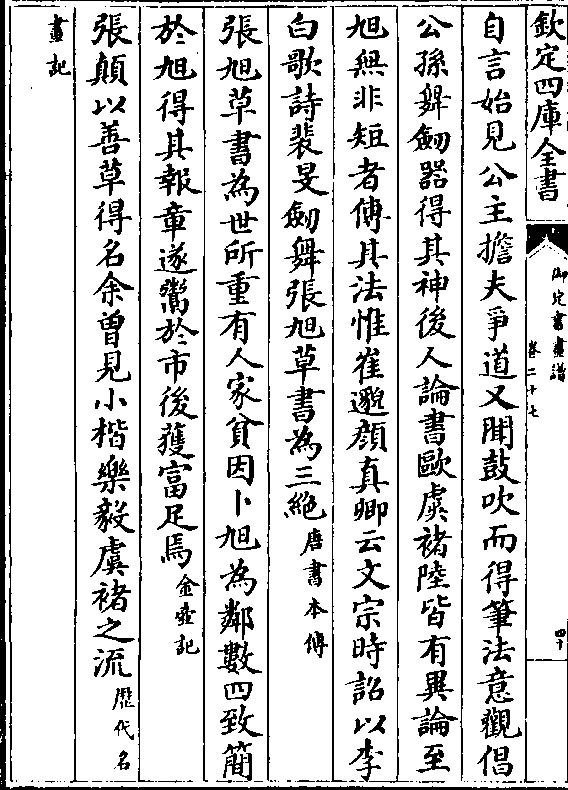 欽定四庫全書
御定書畫譜
卷二十七
四十
自言始見公主擔夫爭道又聞鼓吹而得筆法意觀倡
公孫舞劒器得其神後人論書歐虞禇陸皆有異論至
旭無非短者傳其法惟崔邈顔真卿云文宗時詔以李
白歌詩裴旻劒舞張旭草書為三絶唐書本傳
張旭草書為世所重有人家貧因卜旭為鄰數四致簡
於旭得其報章遂鬻於市後獲富足焉金壺記
張顛以善草得名余曽見小楷樂毅虞禇之流歴代名
畫記